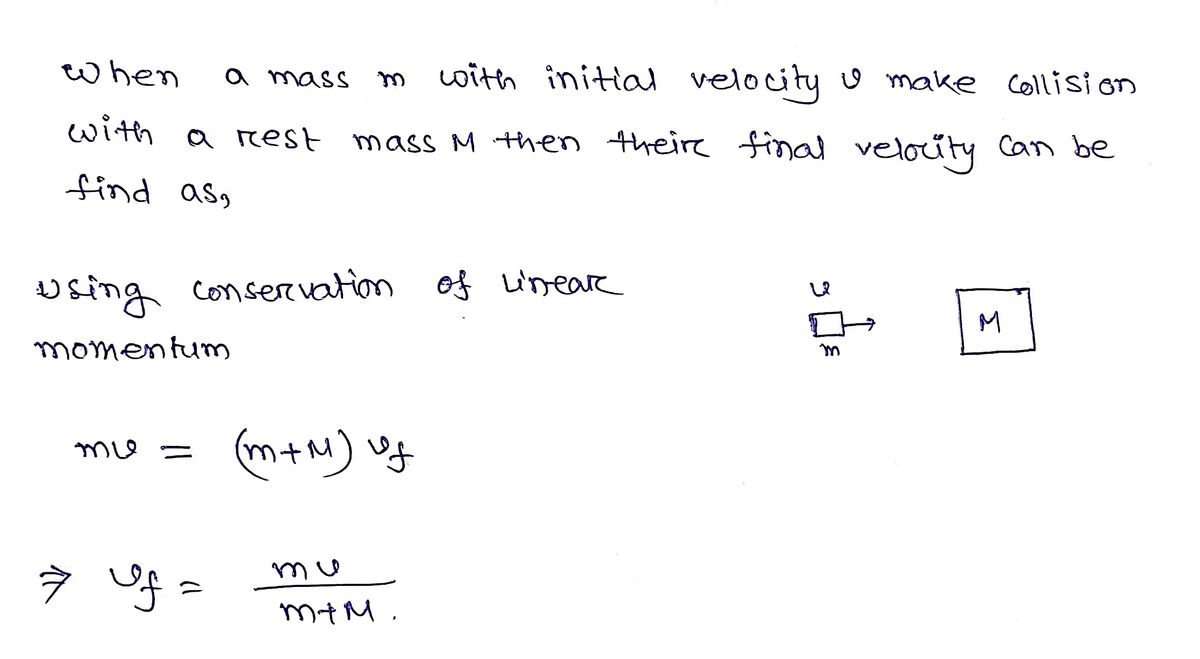 When a mass m with initial velocity v make collision
with a rest mass M then their final velocity can be
find as,
using conservation of linear
v
M
m
momentum
mv = (m+M) vf
⇒ vf = mv / m+M.